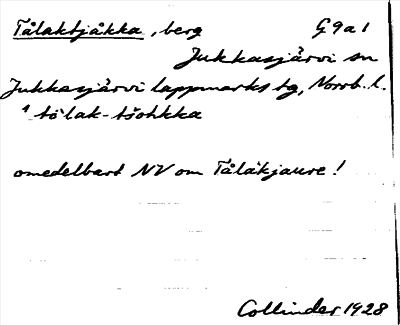 Tålaktjåkka, berg G9a1
Jukkasjärvi sn
Jukkasjärvi lappmarks tg, Norrb. l.
tò̀lak-tšohkka
omedelbart NV om Tålåkjaure!
Collinder 1928